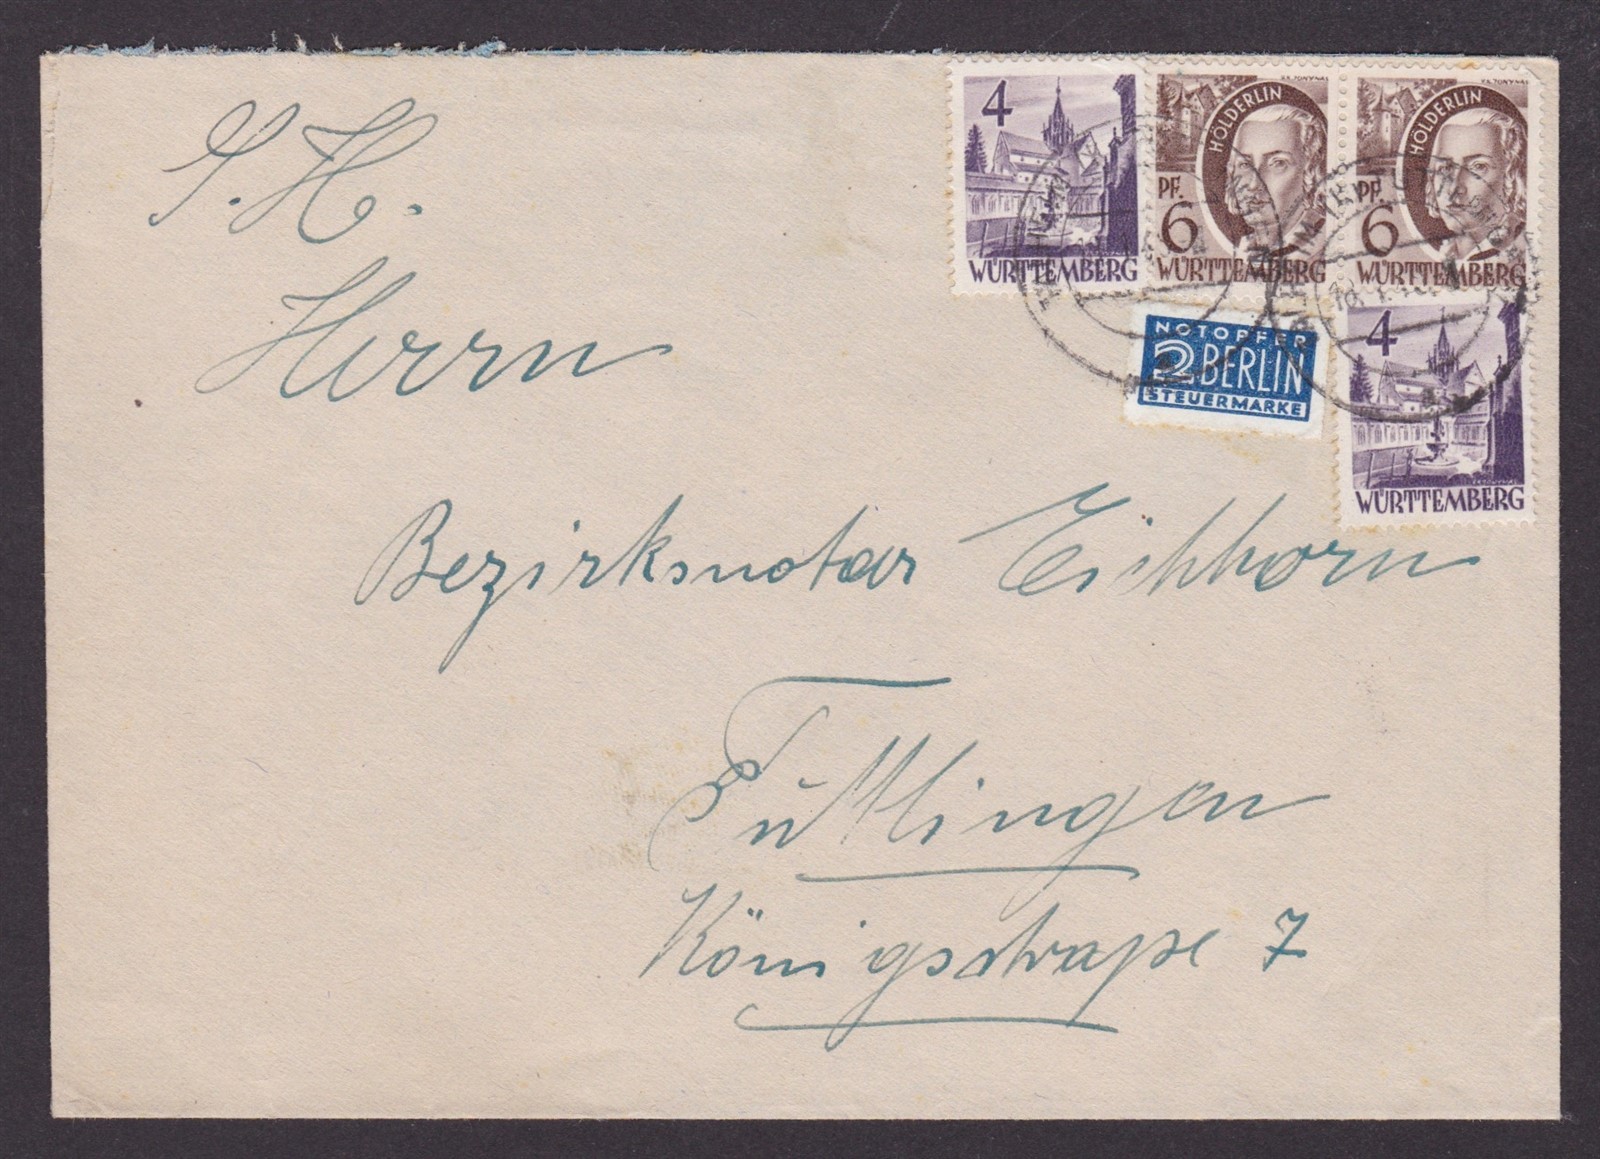 S. H.
Herrn
Bezirksnotar Eichhorn
Tuttlingen
Königstraße 7
4
WÜRTTEMBERG
HÖLDERLIN
PF.
6
WÜRTTEMBERG
HÖLDERLIN
PF.
6
WÜRTTEMBERG
NOTOPFER
2 BERLIN
STEUERMARKE
4
WÜRTTEMBERG